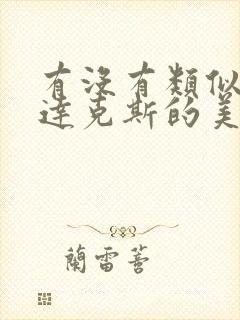 有沒有類似
達克斯的美
蘭雷蒼